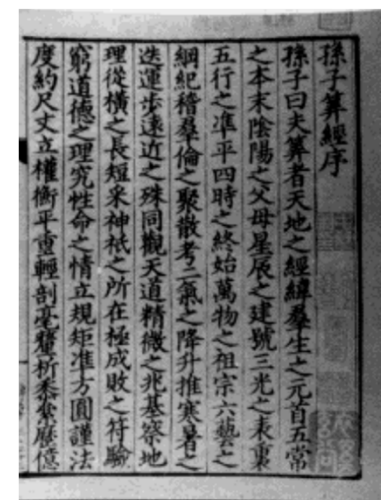 孫子算經序
孫子曰夫算者天地之經緯羣生之元首五常
之本末陰陽之父母星辰之建號三光之表裏
五行之準平四時之終始萬物之祖宗六藝之
綱紀稽羣倫之聚散考二氣之降升推寒暑之
迭運步遠近之殊同觀天道精微之兆基察地
理從橫之長短采神祇之所在極成敗之符驗
窮道德之理究性命之情立規矩准方圓謹法
度約尺丈立權衡平重輕剖毫釐析黍絫歷億